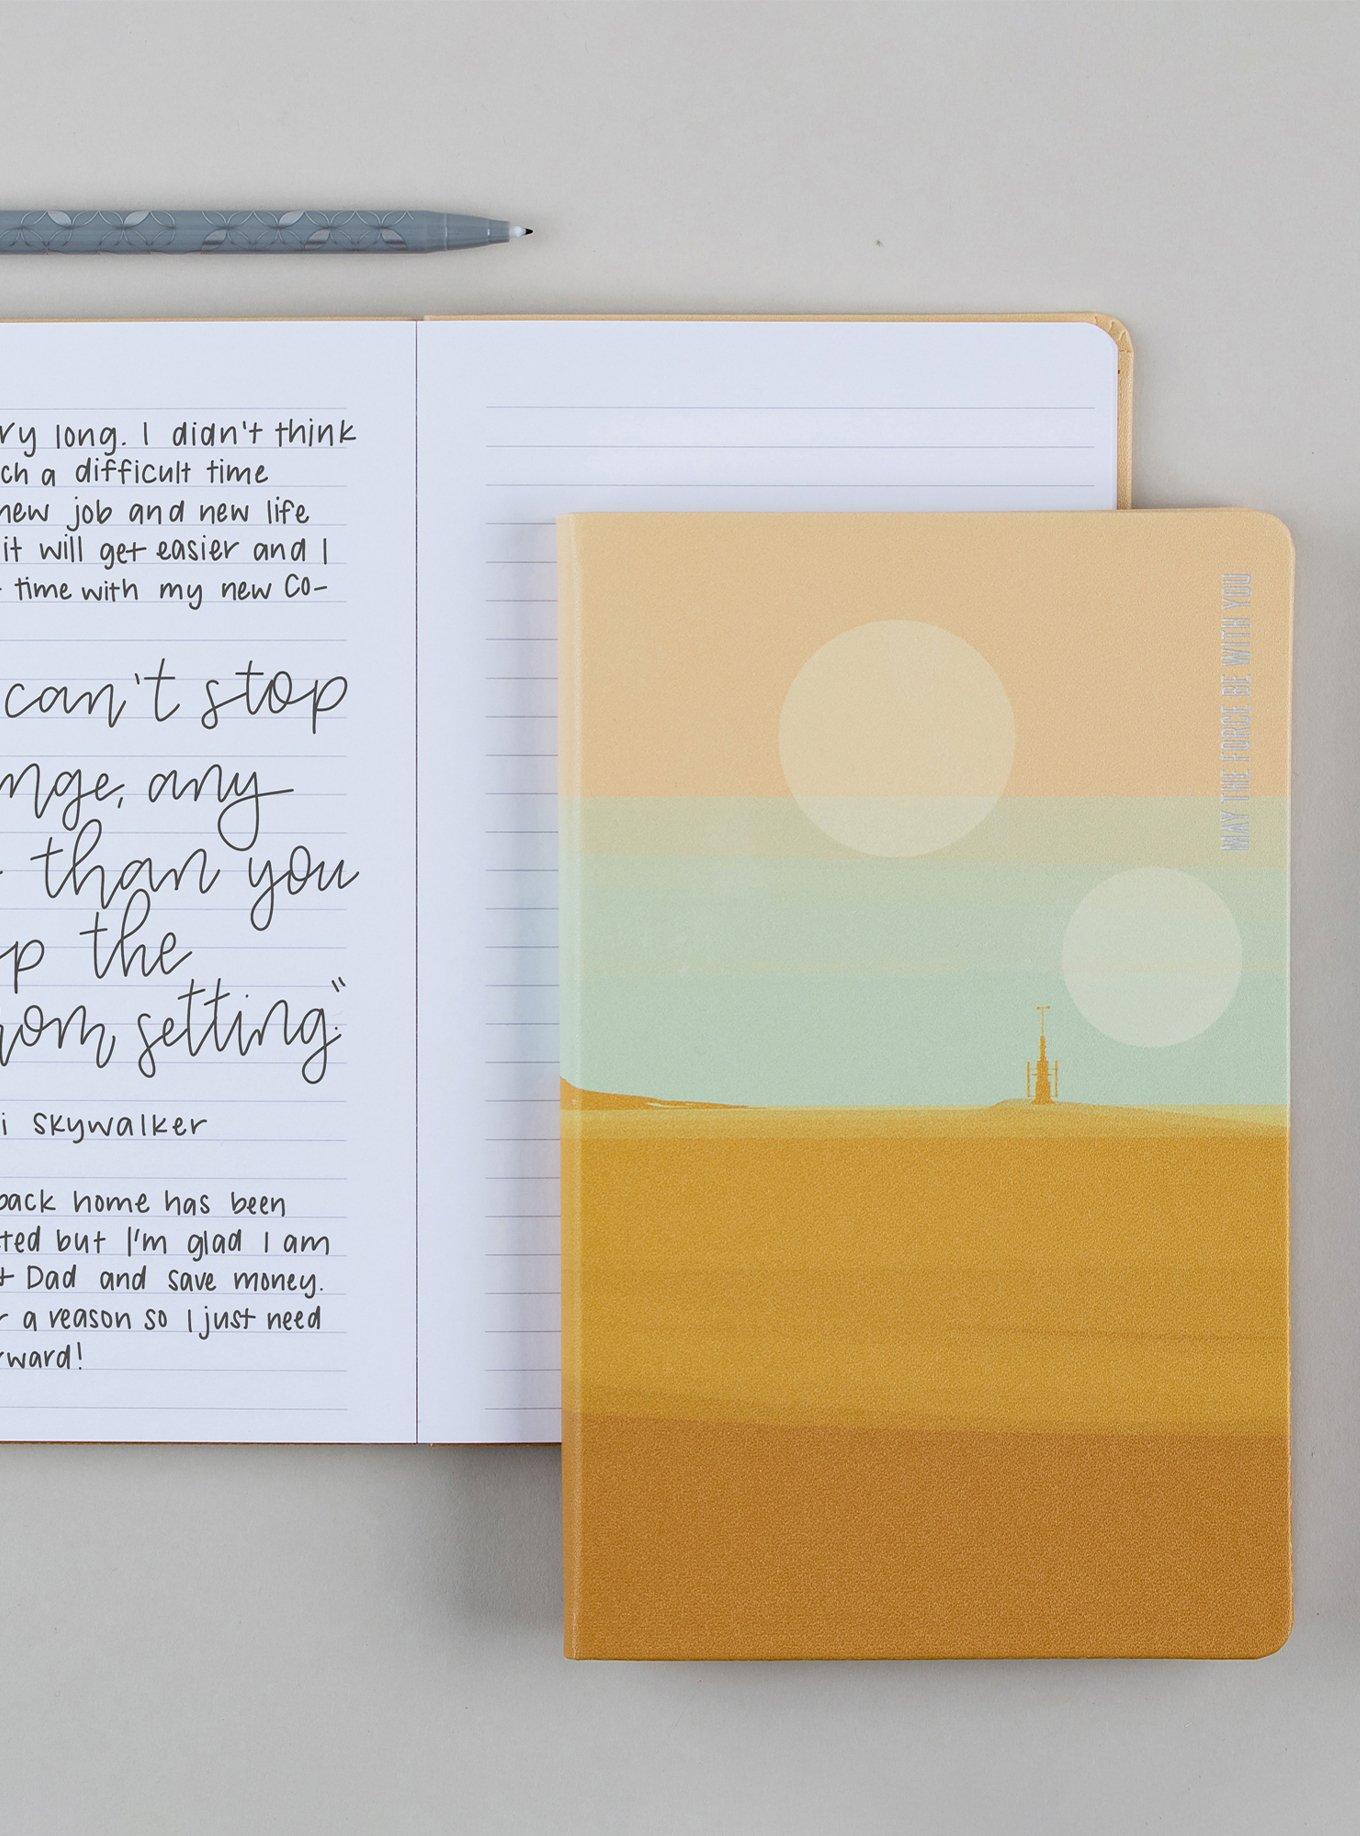 ry long. I didn't think
ch a difficult time
new job and new life
it will get easier and I
time with my new co-
can't stop
nge, any
than you
p the
om setting."
i Skywalker
back home has been
ted but I'm glad I am
t Dad and save money.
r a reason so I just need
rward!
MAY THE FORCE BE WITH YOU